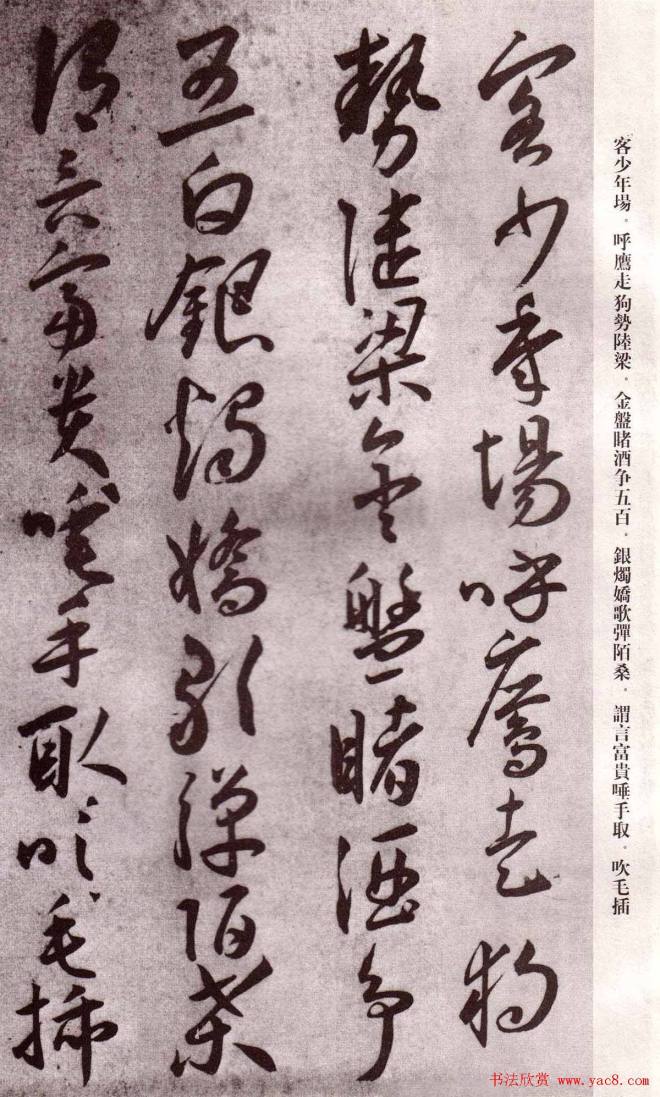 客少年場。呼鷹走狗勢陸梁。金盤睹酒争五百。銀燭嬌歌彈陌桑。謂言富貴唾手取。吹毛插
客少年場呼鷹走狗
勢陸梁金盤睹酒争
五白銀燭嬌歌彈陌桑
謂言富貴唾手取吹毛插
书法欣赏 www.yac8.com